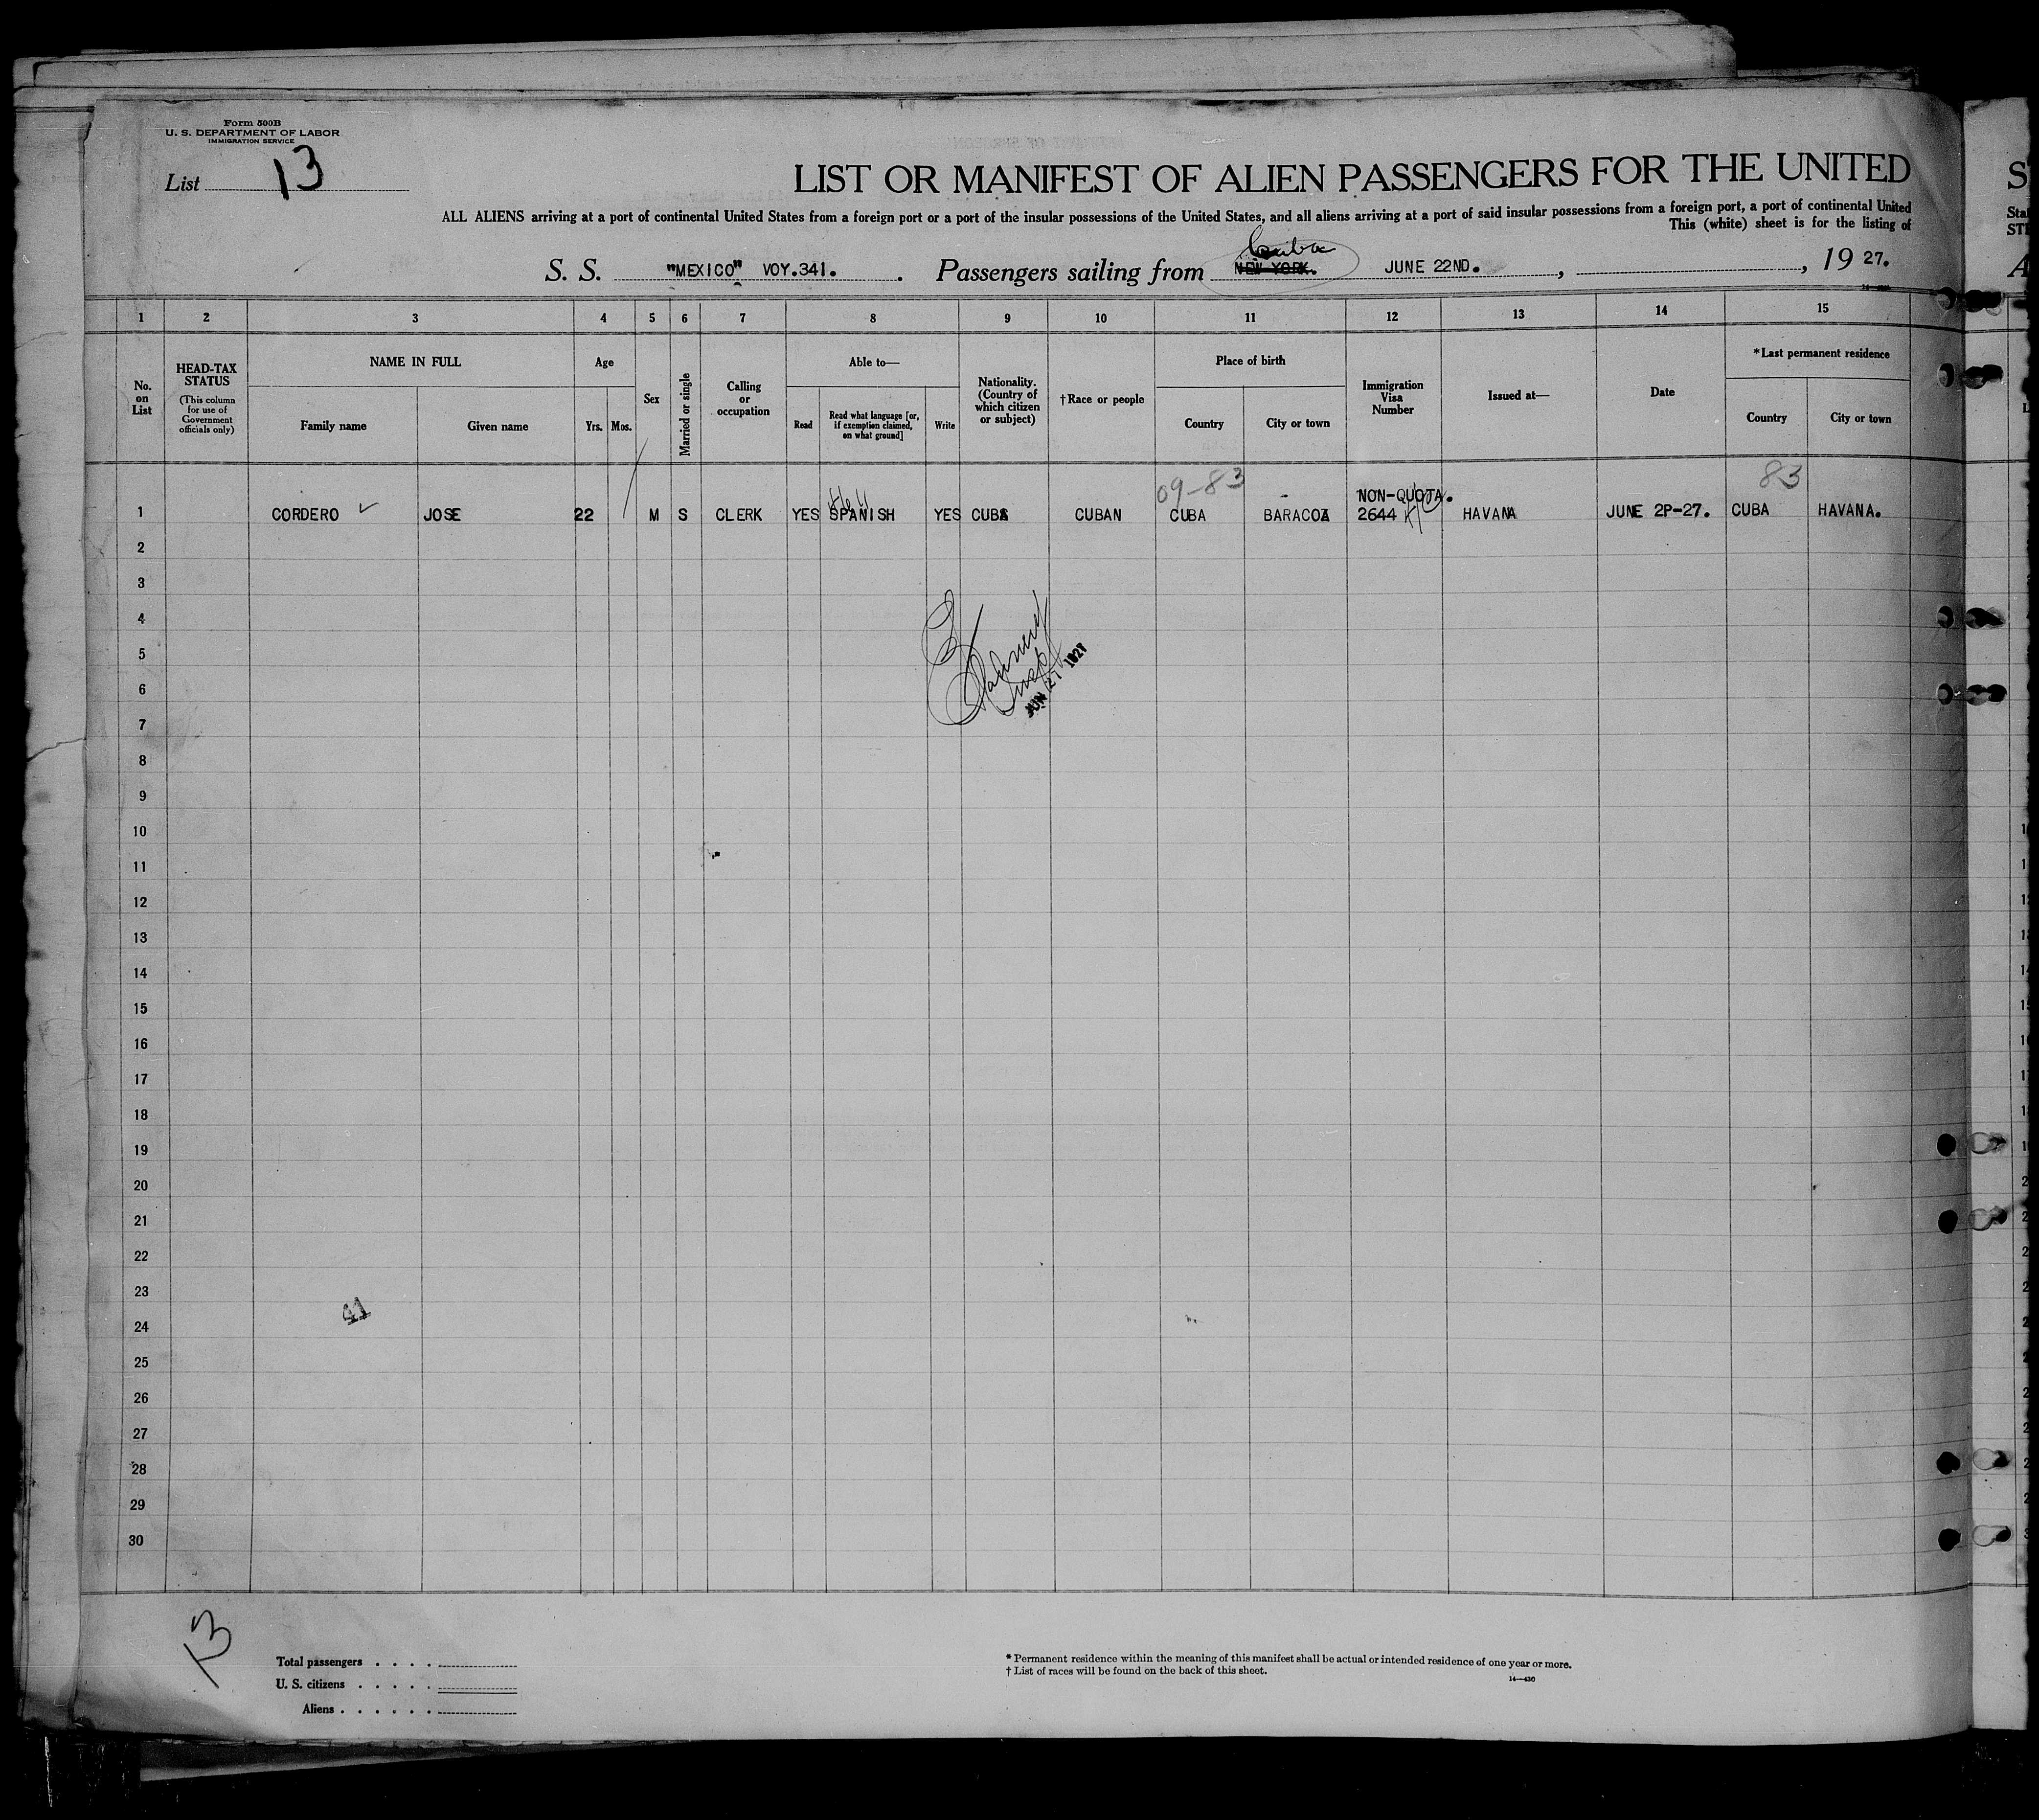 Form 500B
U. S. DEPARTMENT OF LABOR
IMMIGRATION SERVICE
List 13
LIST OR MANIFEST OF ALIEN PASSENGERS FOR THE UNITED
ALL ALIENS arriving at a port of continental United States from a foreign port or a port of the insular possessions of the United States, and all aliens arriving at a port of said insular possessions from a foreign port, a port of continental United
This (white) sheet is for the listing of
Cuba
S. S. "MEXICO" VOY.341. Passengers sailing from NEW YORK. JUNE 22ND. , , 19 27.
1 2 3 4 5 6 7 8 9 10 11 12 13 14 15
No. on List
HEAD-TAX STATUS
(This column for use of Government officials only)
NAME IN FULL
Family name
Given name
Age
Yrs.
Mos.
Sex
Married or single
Calling or occupation
Able to—
Read
Read what language [or, if exemption claimed, on what ground]
Write
Nationality. (Country of which citizen or subject)
†Race or people
Place of birth
Country
City or town
Immigration Visa Number
Issued at—
Date
*Last permanent residence
Country
City or town
09-83
83
NON-QUOTA.
1 CORDERO JOSE 22 M S CLERK YES SPANISH YES CUBA CUBAN CUBA BARACOA 2644 HAVANA JUNE 2P-27. CUBA HAVANA.
2
3
4
5
6
JUN 27 1927
7
8
9
10
11
12
13
14
15
16
17
18
19
20
21
22
23
41
24
25
26
27
28
29
30
13
Total passengers . . . .
U. S. citizens . . . . .
Aliens . . . . . .
* Permanent residence within the meaning of this manifest shall be actual or intended residence of one year or more.
† List of races will be found on the back of this sheet.
14—430